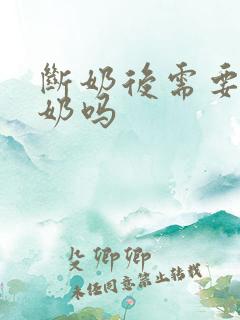 斷奶後需要
奶吗
殳卿卿
未经同意禁止转载